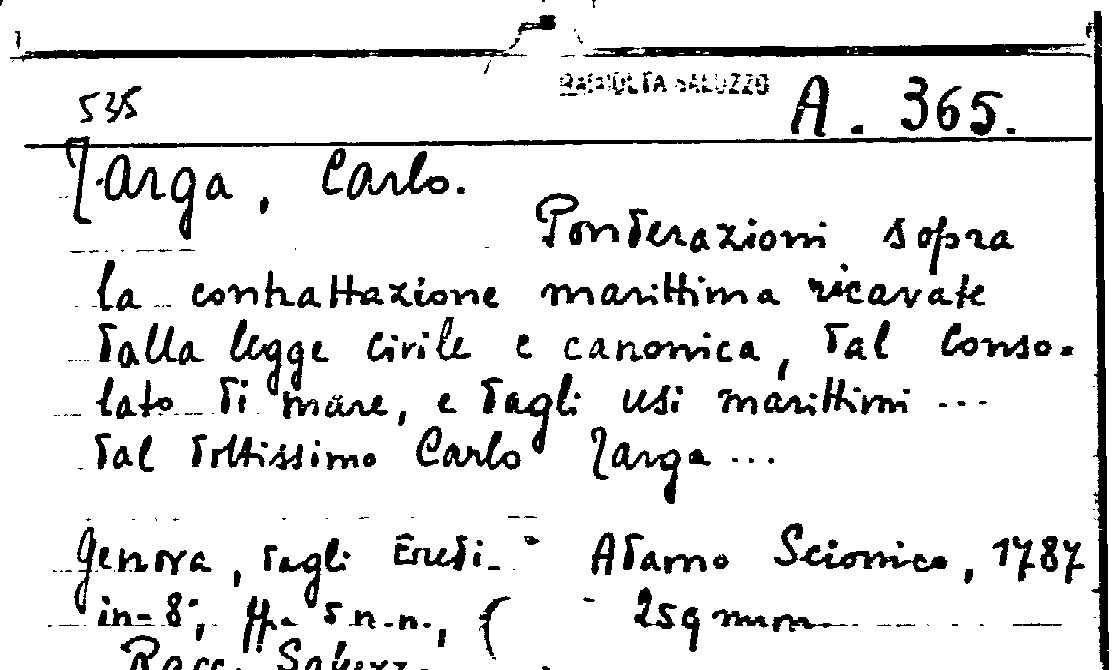 535 RACCOLTA SALUZZO A. 365.
Targa, Carlo.
Ponderazioni sopra
la contrattazione marittima ricavate
dalla legge civile e canonica, dal Conso-
lato di mare, e dagli usi marittimi ...
dal dottissimo Carlo Targa ...
Genova, dagli Eredi - Adamo Scionico, 1787
in-8°, ff. 5 n.n., ( - 259 num.
Racc. Saluzz.